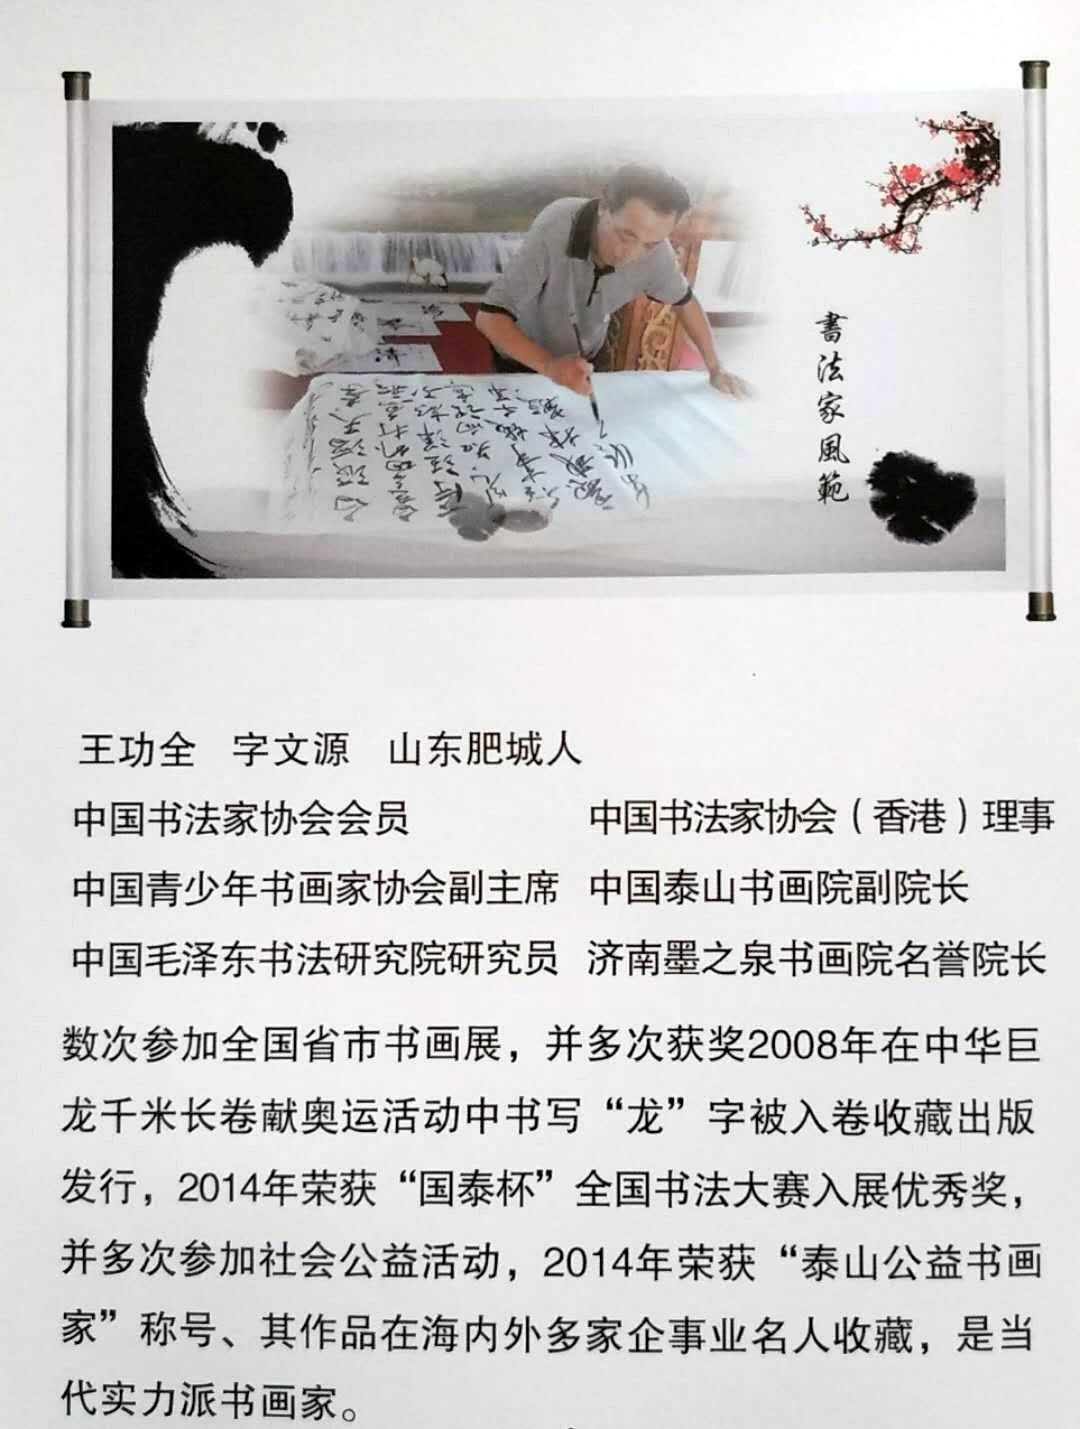 書法家風範
王功全 字文源 山东肥城人
中国书法家协会会员 中国书法家协会（香港）理事
中国青少年书画家协会副主席 中国泰山书画院副院长
中国毛泽东书法研究院研究员 济南墨之泉书画院名誉院长
数次参加全国省市书画展，并多次获奖2008年在中华巨
龙千米长卷献奥运活动中书写“龙”字被入卷收藏出版
发行，2014年荣获“国泰杯”全国书法大赛入展优秀奖，
并多次参加社会公益活动，2014年荣获“泰山公益书画
家”称号、其作品在海内外多家企事业名人收藏，是当
代实力派书画家。